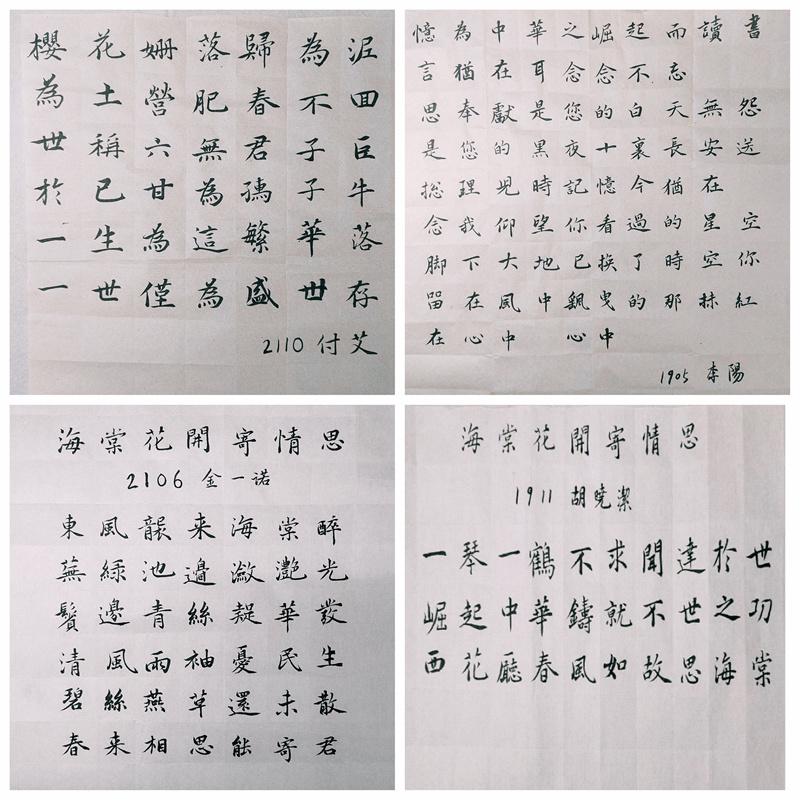 櫻花姍落歸為泥
為土營肥春不回
世稱六無君子巨
於已甘為孺子牛
一生為這繁華落
一世僅為盛世存
2110 付艾
憶為中華之崛起而讀書
言猶在耳念念不忘
思奉獻是您的白天無怨
是您的黑夜十裏長安送
總理兒時記憶今猶在
念我仰望你看過的星空
脚下大地已換了時空你
畱在風中飄曳的那抹紅
在心中 心中
1905 李陽
海棠花開寄情思
2106 金一诺
東風襲来海棠醉
蕪綠池邊瀲灔光
鬢邊青絲凝華發
清風雨袖憂民生
碧絲燕草還未散
春来相思能寄君
海棠花開寄情思
1911 胡曉潔
一琴一鶴不求聞達於世
崛起中華鑄就不世之功
西花廳春風如故思海棠